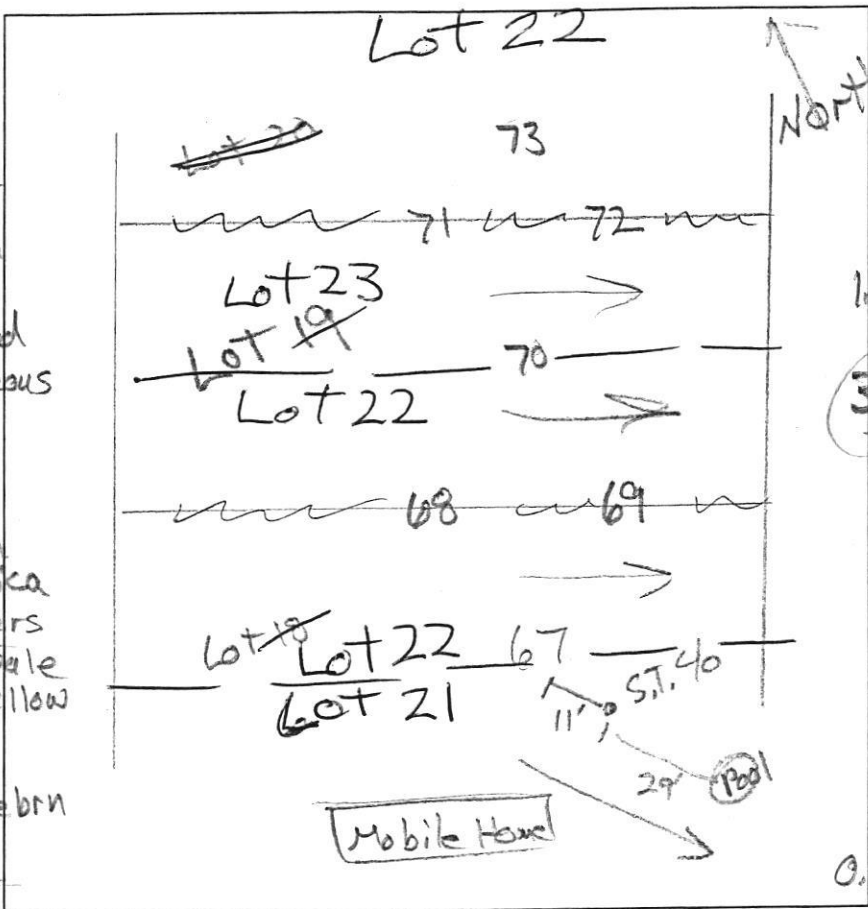 Lot 22
North
Lot 20 73
71 72
Lot 23
Lot 19 70
Lot 22
68 69
Lot 18 Lot 22 67 S.T. 40
Lot 21
11'
29' Pool
Mobile Home
d
ous
ca
rs
ale
llow
brn
3
0.